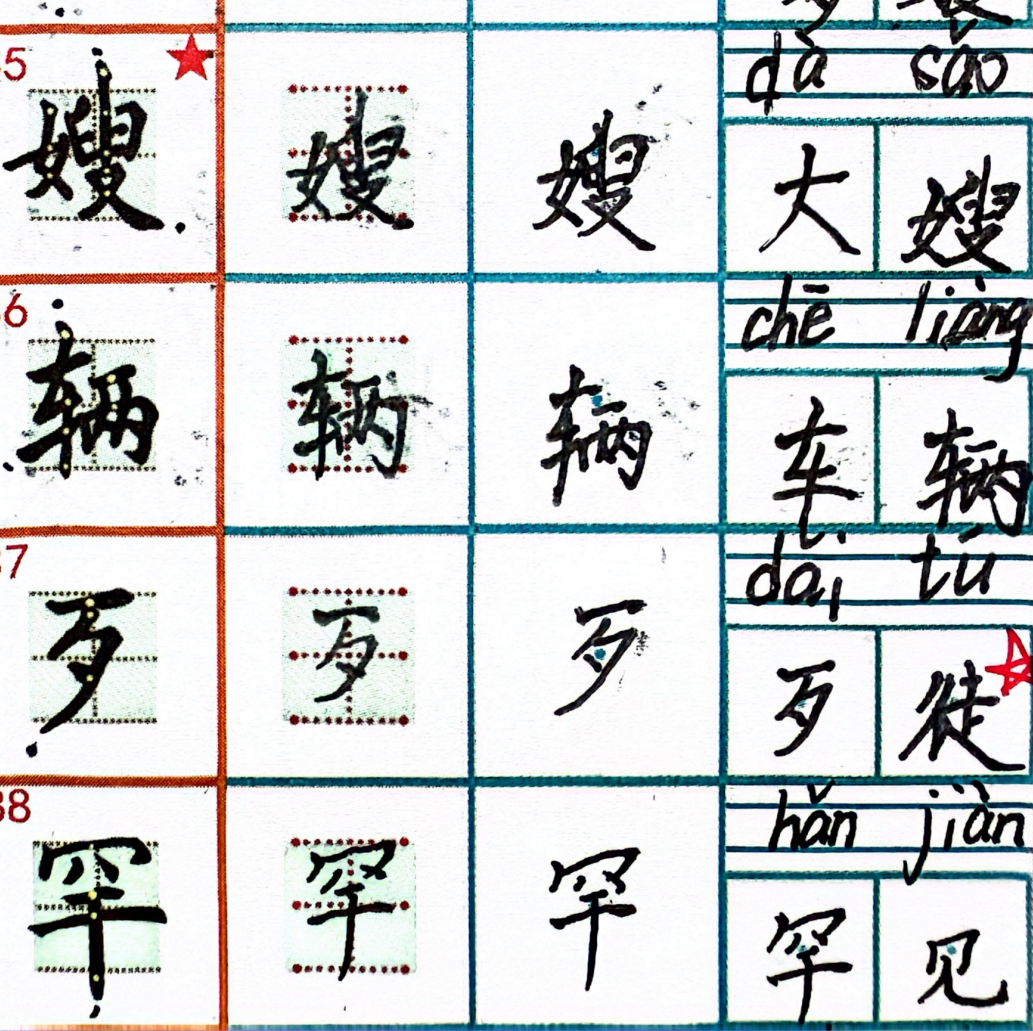 5 嫂 嫂 嫂 dà sǎo
大 嫂
6 辆 辆 辆 chē liàng
车 辆
37 歹 歹 歹 dǎi tú
歹 徒
38 罕 罕 罕 hǎn jiàn
罕 见